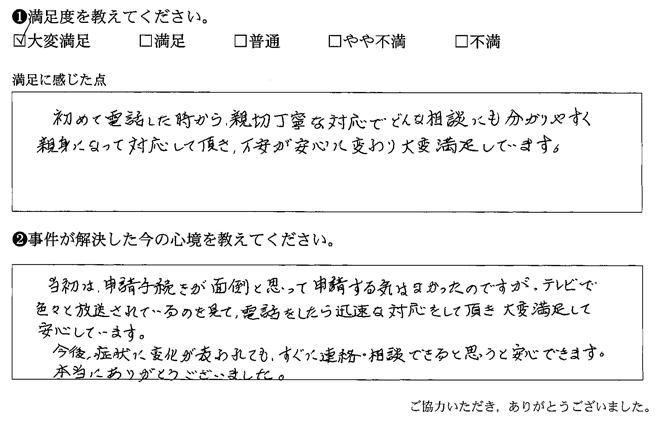 ❶満足度を教えてください。
☑大変満足　□満足　□普通　□やや不満　□不満
満足に感じた点
初めて電話した時から、親切丁寧な対応でどんな相談にも分かりやすく
親身になって対応して頂き、不安が安心に変わり大変満足しています。
❷事件が解決した今の心境を教えてください。
当初は、申請手続きが面倒と思って申請する気はなかったのですが、テレビで
色々と放送されているのを見て、電話をしたら迅速な対応をして頂き大変満足して
安心しています。
今後、症状に変化が表われても、すぐに連絡・相談できると思うと安心できます。
本当にありがとうございました。
ご協力いただき，ありがとうございました。